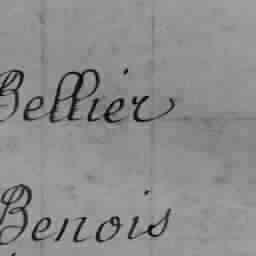 Bellier
Benois